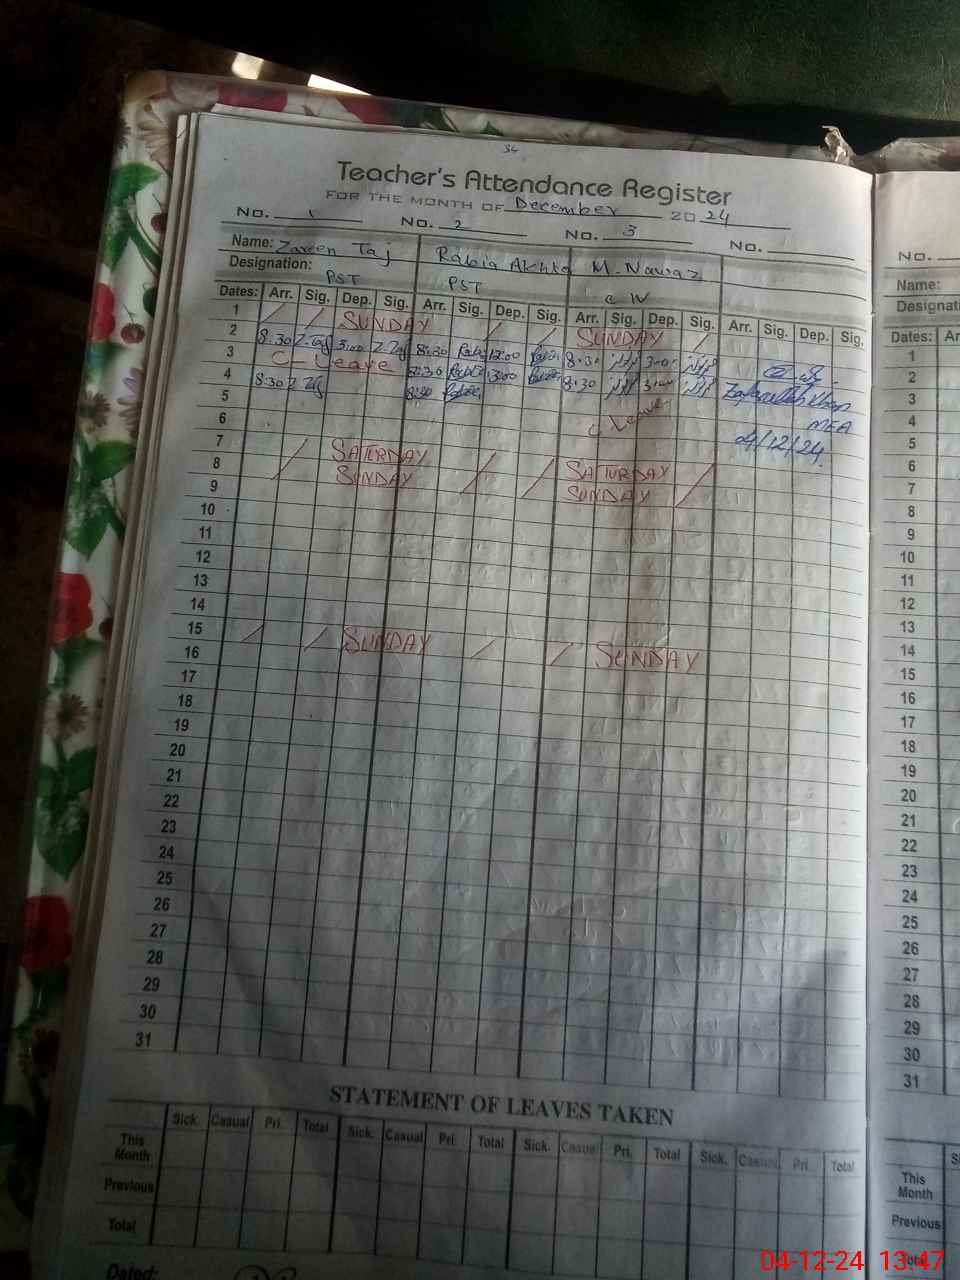 34
Teacher's Attendance Register
FOR THE MONTH OF December 20 24
No. 1 No. 2 No. 3 No.
Name: Zareen Taj Rabia Akhta M. Nawaz
Designation: PST PST C IV
Dates: Arr. Sig. Dep. Sig. Arr. Sig. Dep. Sig. Arr. Sig. Dep. Sig. Arr. Sig. Dep. Sig.
1 SUNDAY SUNDAY
2 8.30 Z.Taj 3:00 Z.Taj 8:30 12:00 8:30 3:00
3 C-Leave 8:30 3:00 8:30 3:00
4 8:30 Z.Taj 8:30 C Leave Zafarullah Khan
5 MEA
6 04/12/24.
7 SATURDAY SATURDAY
8 SUNDAY SUNDAY
9
10
11
12
13
14
15 SUNDAY SUNDAY
16
17
18
19
20
21
22
23
24
25
26
27
28
29
30
31
STATEMENT OF LEAVES TAKEN
Sick. Casual Pri. Total Sick. Casual Pri. Total Sick. Casual Pri. Total Sick. Casual Pri. Total
This Month
Previous
Total
Dated:
No.
Name:
Designati
Dates: Ar
1
2
3
4
5
6
7
8
9
10
11
12
13
14
15
16
17
18
19
20
21
22
23
24
25
26
27
28
29
30
31
This Month
Previous
Total
04-12-24 13:47